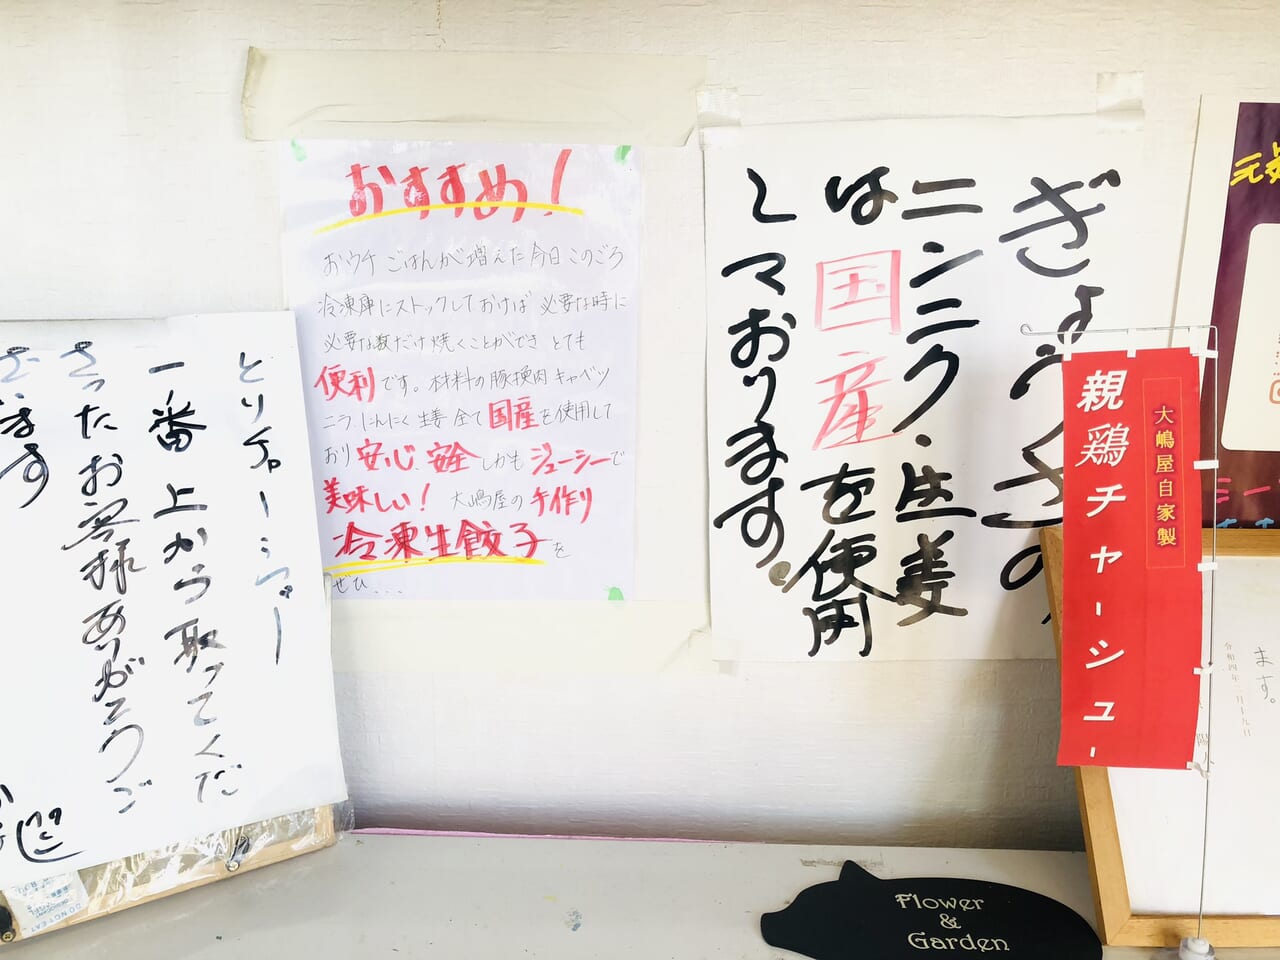 おすすめ!
おウチごはんが増えた今日このごろ
冷凍庫にストックしておけば必要な時に
必要な数だけ焼くことができとても
便利です。材料の豚挽肉キャベツ
ニラ、にんにく生姜全て国産を使用して
おり安心、安全しかもジューシーで
美味しい!大嶋屋の手作り
冷凍生餃子を
ぜひ...
ぎょうざの
ニンニク・生姜
は国産を使用
しております。
とりチャーシュー
一番上から取ってくだ
さったお客様ありがとうご
ざいます
親鶏チャーシュー
大嶋屋自家製
元気
ます。
令和四年二月十九日
Flower
&
Garden